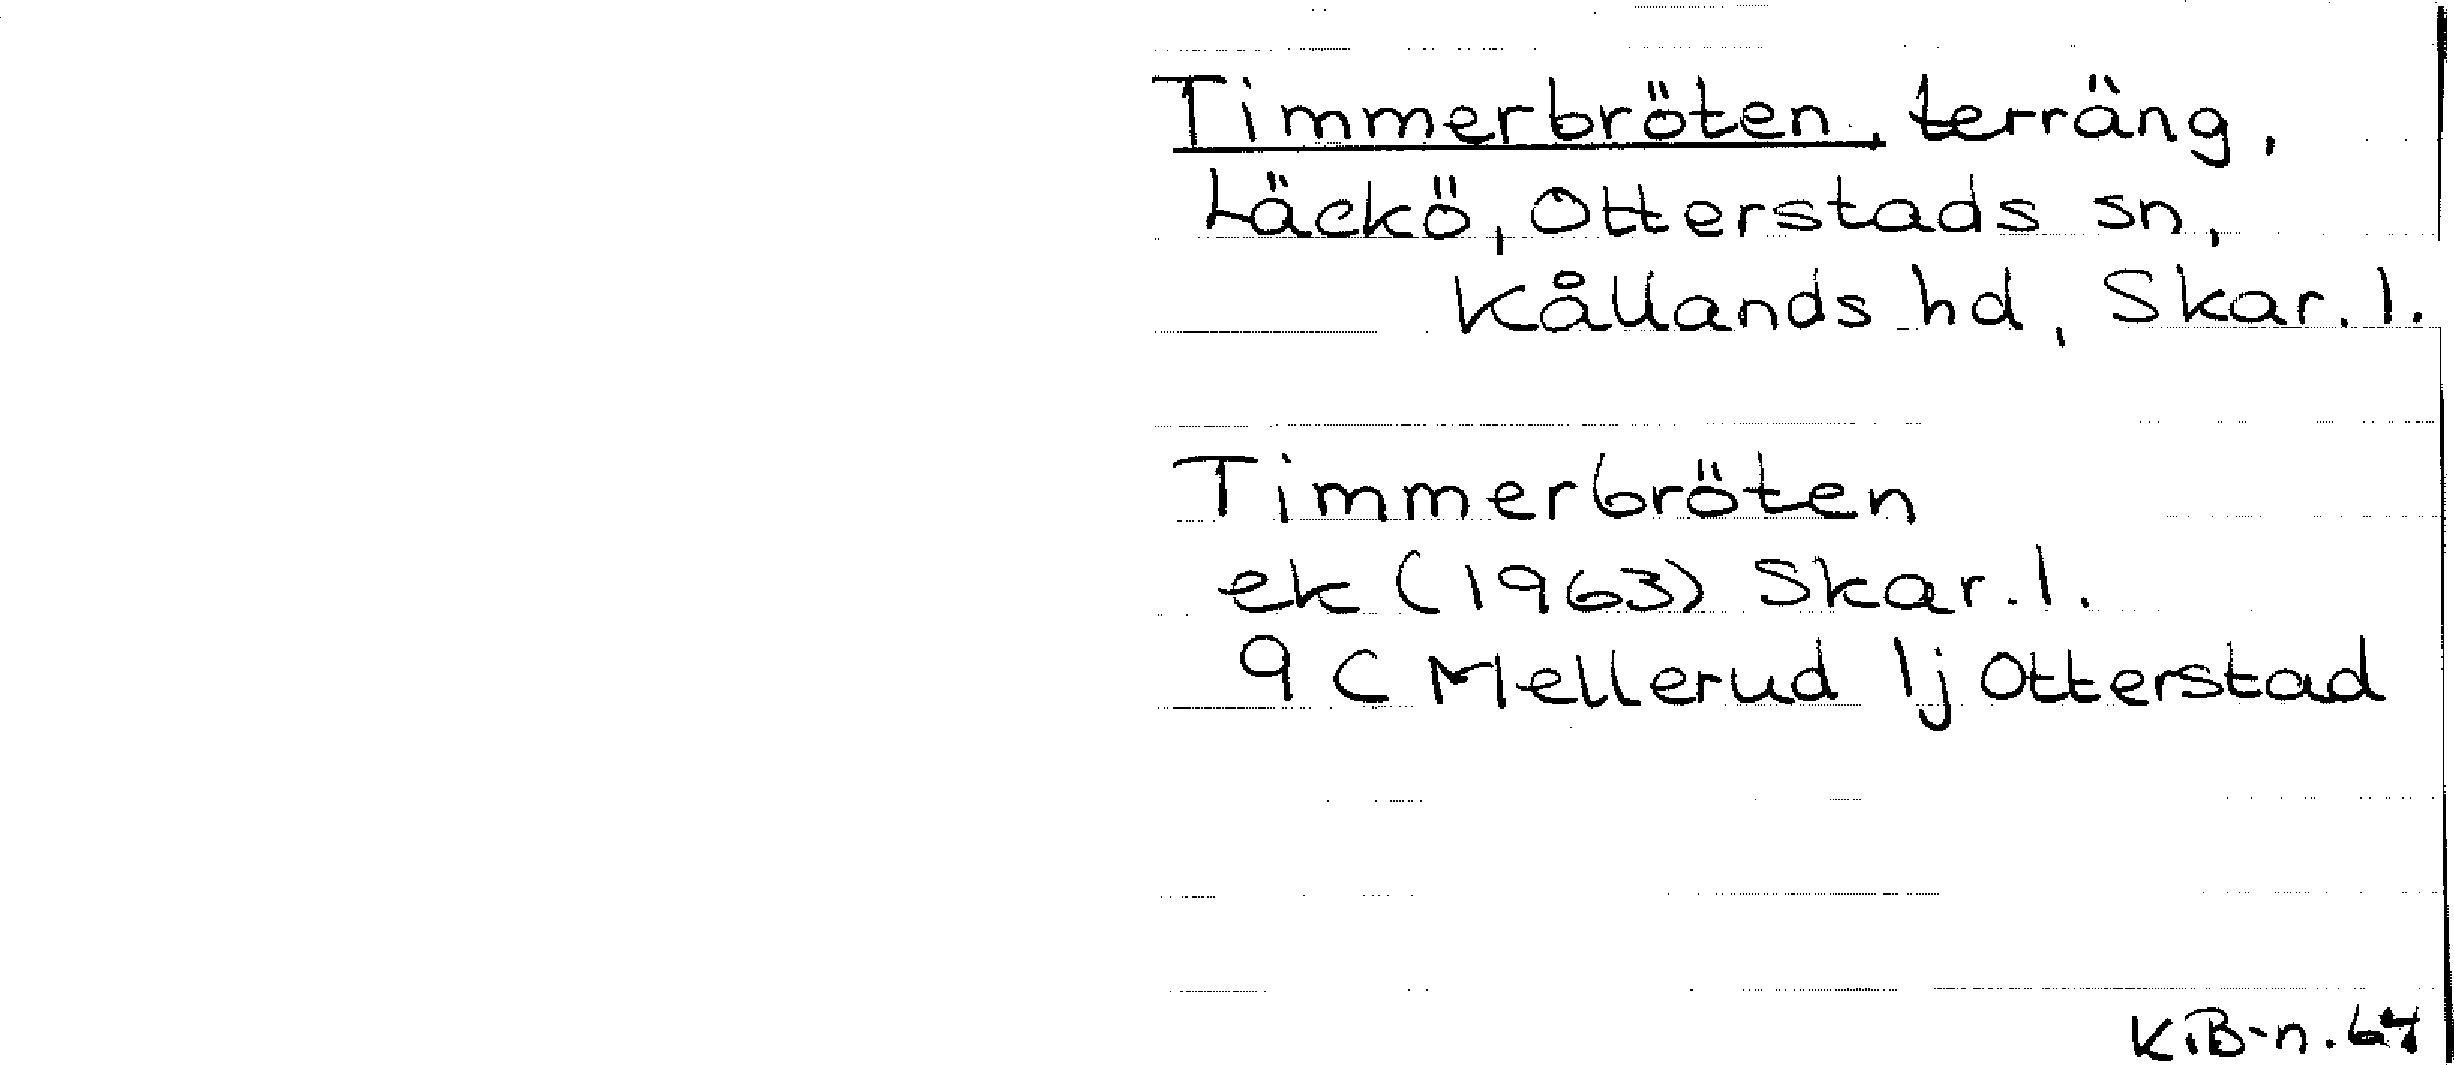 Timmerbröten, terräng,
Läckö, Otterstads sn,
Kållands hd, Skar. l.
Timmerbröten
ek (1963) Skar. l.
9 C Mellerud 1j Otterstad
K.B-n. 64